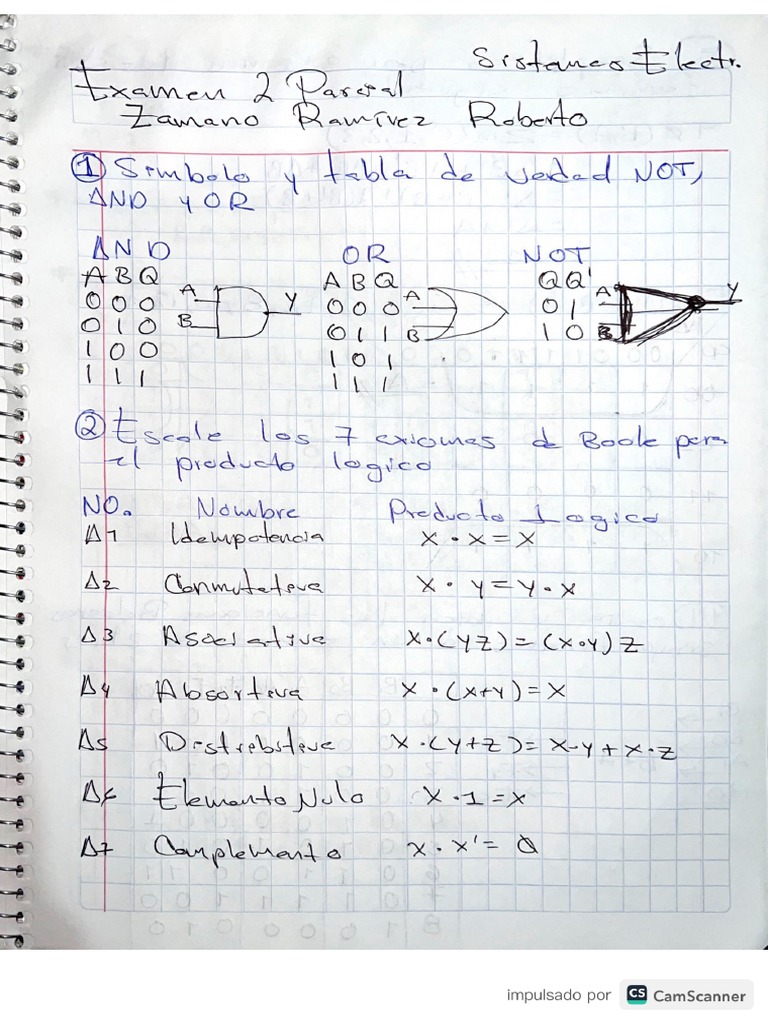 Sistemas Electr.
Examen 2 Parcial
Zamano Ramírez Roberto
① Simbolo y tabla de verdad NOT,
AND y OR
AND OR NOT
A B Q A B Q Q Q'
0 0 0 0 0 0 0 1
0 1 0 0 1 1 1 0
1 0 0 1 0 1
1 1 1 1 1 1
A B Y A B A B Y
② Escribe los 7 axiomas d Boole para
el producto logico
NO. Nombre Producto Logico
A1 Idempotencia x · x = x
A2 Conmutativa x · y = y · x
A3 Asociative x · (yz) = (x·y) z
A4 Absortiva x · (x+y) = x
A5 Distrebitive x · (y+z) = x-y + x·z
A6 Elemento Nulo x · 1 = x
A7 Complemento x · x' = 0
impulsado por CS CamScanner